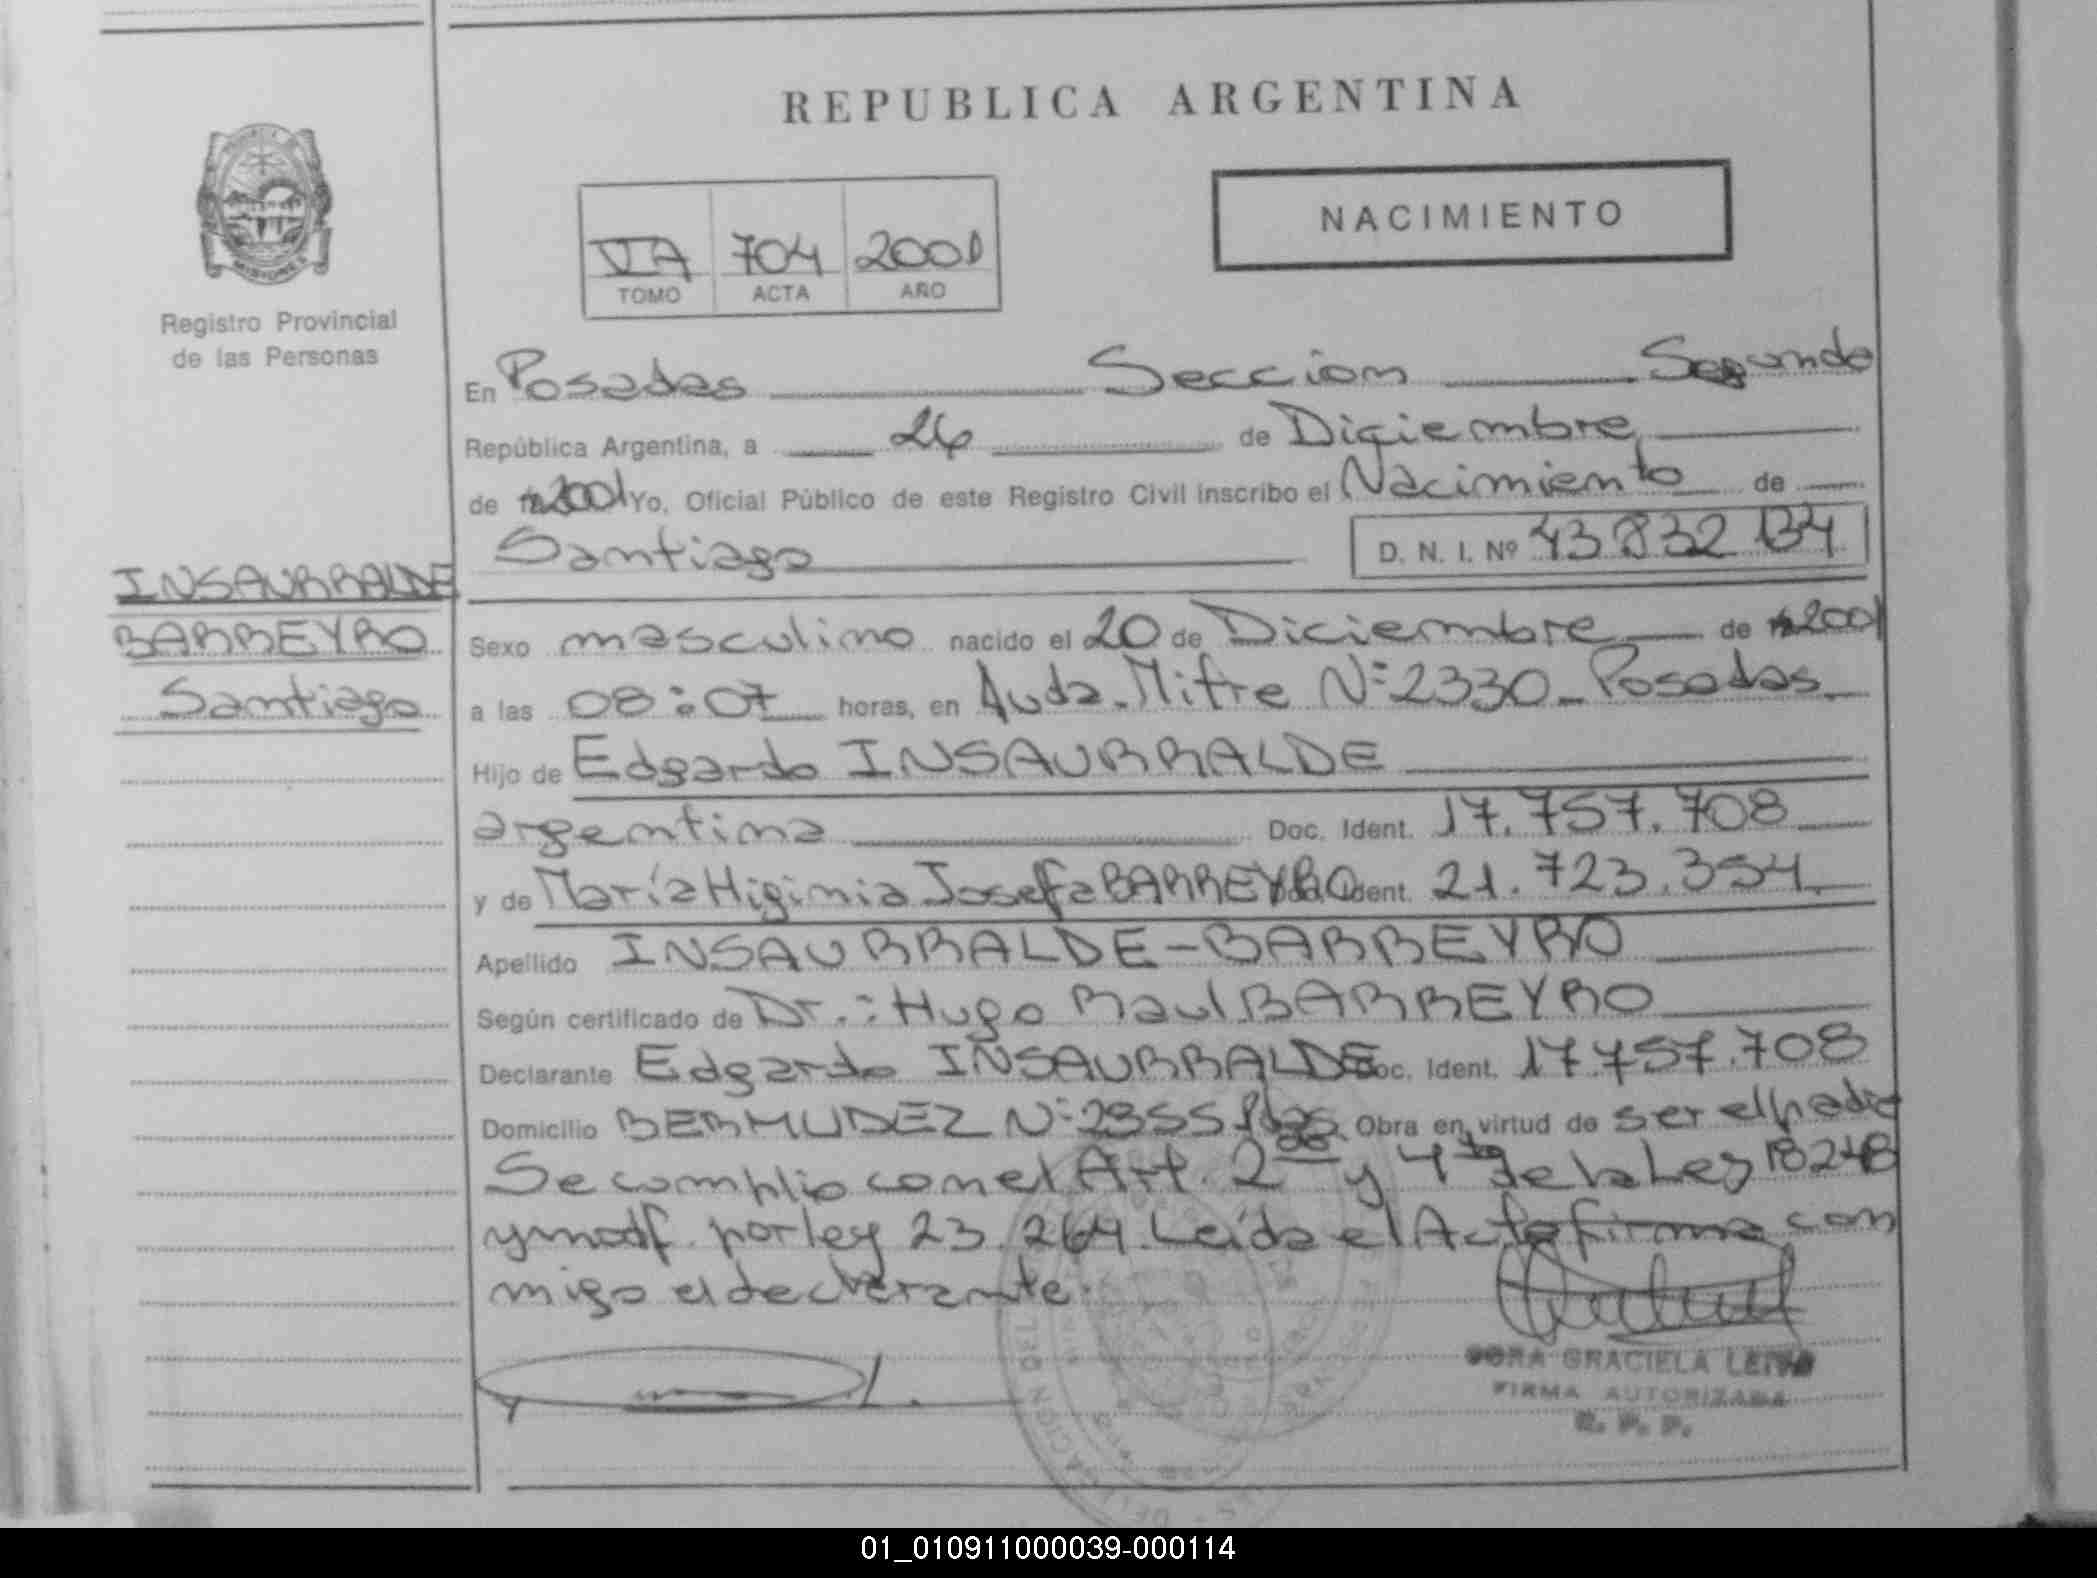 REPUBLICA ARGENTINA
NACIMIENTO
VIA 704 2001
TOMO ACTA AÑO
MISIONES
Registro Provincial
de las Personas
En Posadas Seccion Segunda
República Argentina, a 26 de Diciembre
de 2001 Yo, Oficial Público de este Registro Civil inscribo el Nacimiento de
Santiago D. N. I. Nº 43 832 134
INSAURRALDE
BARREYRO
Santiago
Sexo masculino nacido el 20 de Diciembre de 2001
a las 08:07 horas, en Avda. Mitre Nº 2330 - Posadas
Hijo de Edgardo INSAURRALDE
argentina Doc. Ident. 17.757.708
y de María Higinia Josefa BARREYRO Doc. Ident. 21.723.354
Apellido INSAURRALDE - BARREYRO
Según certificado de Dr.: Hugo Raul BARREYRO
Declarante Edgardo INSAURRALDE Doc. Ident. 17.757.708
Domicilio BERMUDEZ Nº 2355 Pdas Obra en virtud de ser el padre
Se complio con el Art. 2do y 4to de la Ley 18248
y modf. por ley 23.264. Leída el Acta firma con
migo el declarante.
GRACIELA
FIRMA AUTORIZADA
R. P. P.
01_010911000039-000114